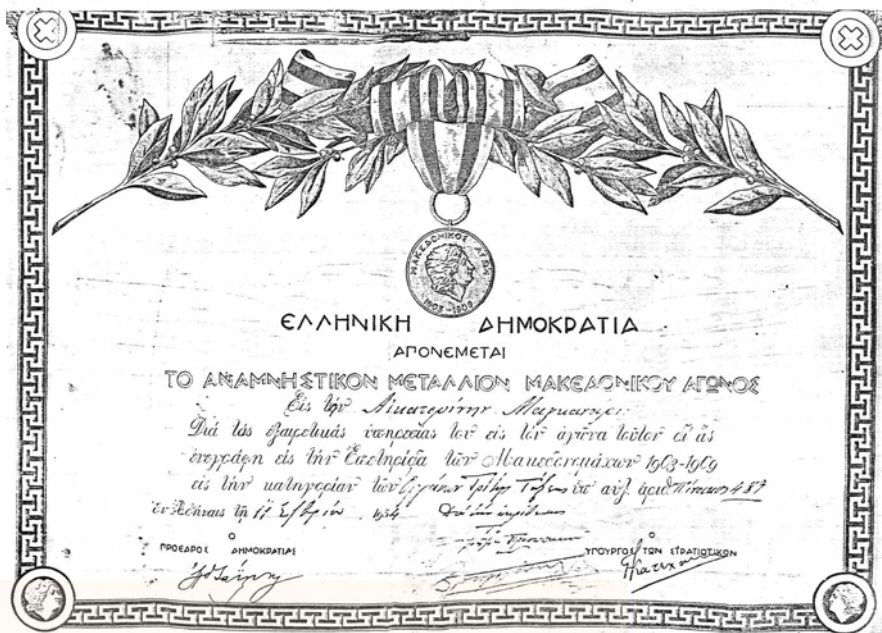 ΜΑΚΕΔΟΝΙΚΟΣ ΑΓΩΝ
1903-1909
ΕΛΛΗΝΙΚΗ ΔΗΜΟΚΡΑΤΙΑ
ΑΠΟΝΕΜΕΤΑΙ
ΤΟ ΑΝΑΜΝΗΣΤΙΚΟΝ ΜΕΤΑΛΛΙΟΝ ΜΑΚΕΔΟΝΙΚΟΥ ΑΓΩΝΟΣ
Εἰς τὴν Αἰκατερίνην
Διὰ τὰς ἐξαιρετικάς ὑπηρεσίας του εἰς τὸν ἀγῶνα τοῦτον δι' ἃς
ἐνεγράφη εἰς τὴν Ἐπετηρίδα τῶν Μακεδονομάχων 1903-1909
εἰς τὴν κατηγορίαν τῶν Τρίτης Τάξεως ὑπ' αὔξ. ἀριθ. Πίνακος 487
ἐν Ἀθήναις τῇ 1934
Ο Ο
ΠΡΟΕΔΡΟΣ ΔΗΜΟΚΡΑΤΙΑΣ ΥΠΟΥΡΓΟΣ ΤΩΝ ΣΤΡΑΤΙΩΤΙΚΩΝ